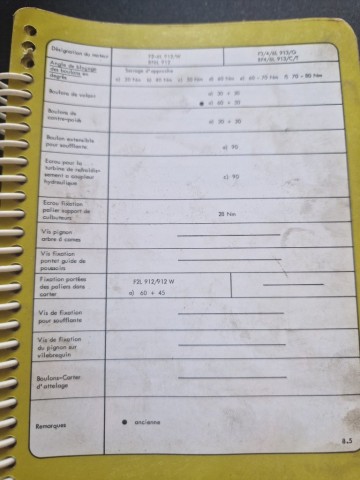 Désignation du moteur
F2-6L 912/W
BF6L 913
F2/4/6L 913/G
Angle de blocage
des boulons en
degrés
Serrage d'approche
a) 20 Nm b) 45 Nm c) 30 Nm d) 40 Nm e) 60 - 70 Nm f) 70 - 80 Nm
Boulons de volant
30 + 30
● 60 + 30
Boulons de
contre-poids
30 + 30
Boulon extensible
pour soufflante
90
Ecrou pour la
turbine de refroidis-
sement à coupleur
hydraulique
90
Ecrou fixation
palier support de
culbuteurs
Nm
Vis pignon
arbre à cames
Vis fixation
pontet guide de
poussoirs
Fixation portées
des paliers dans
carter
F2L 912/912 W
a) 60 + 45
Vis de fixation
pour soufflante
Vis de fixation
du pignon sur
vilebrequin
Boulons-Carter
d'attelage
Remarques
● ancienne
8.5